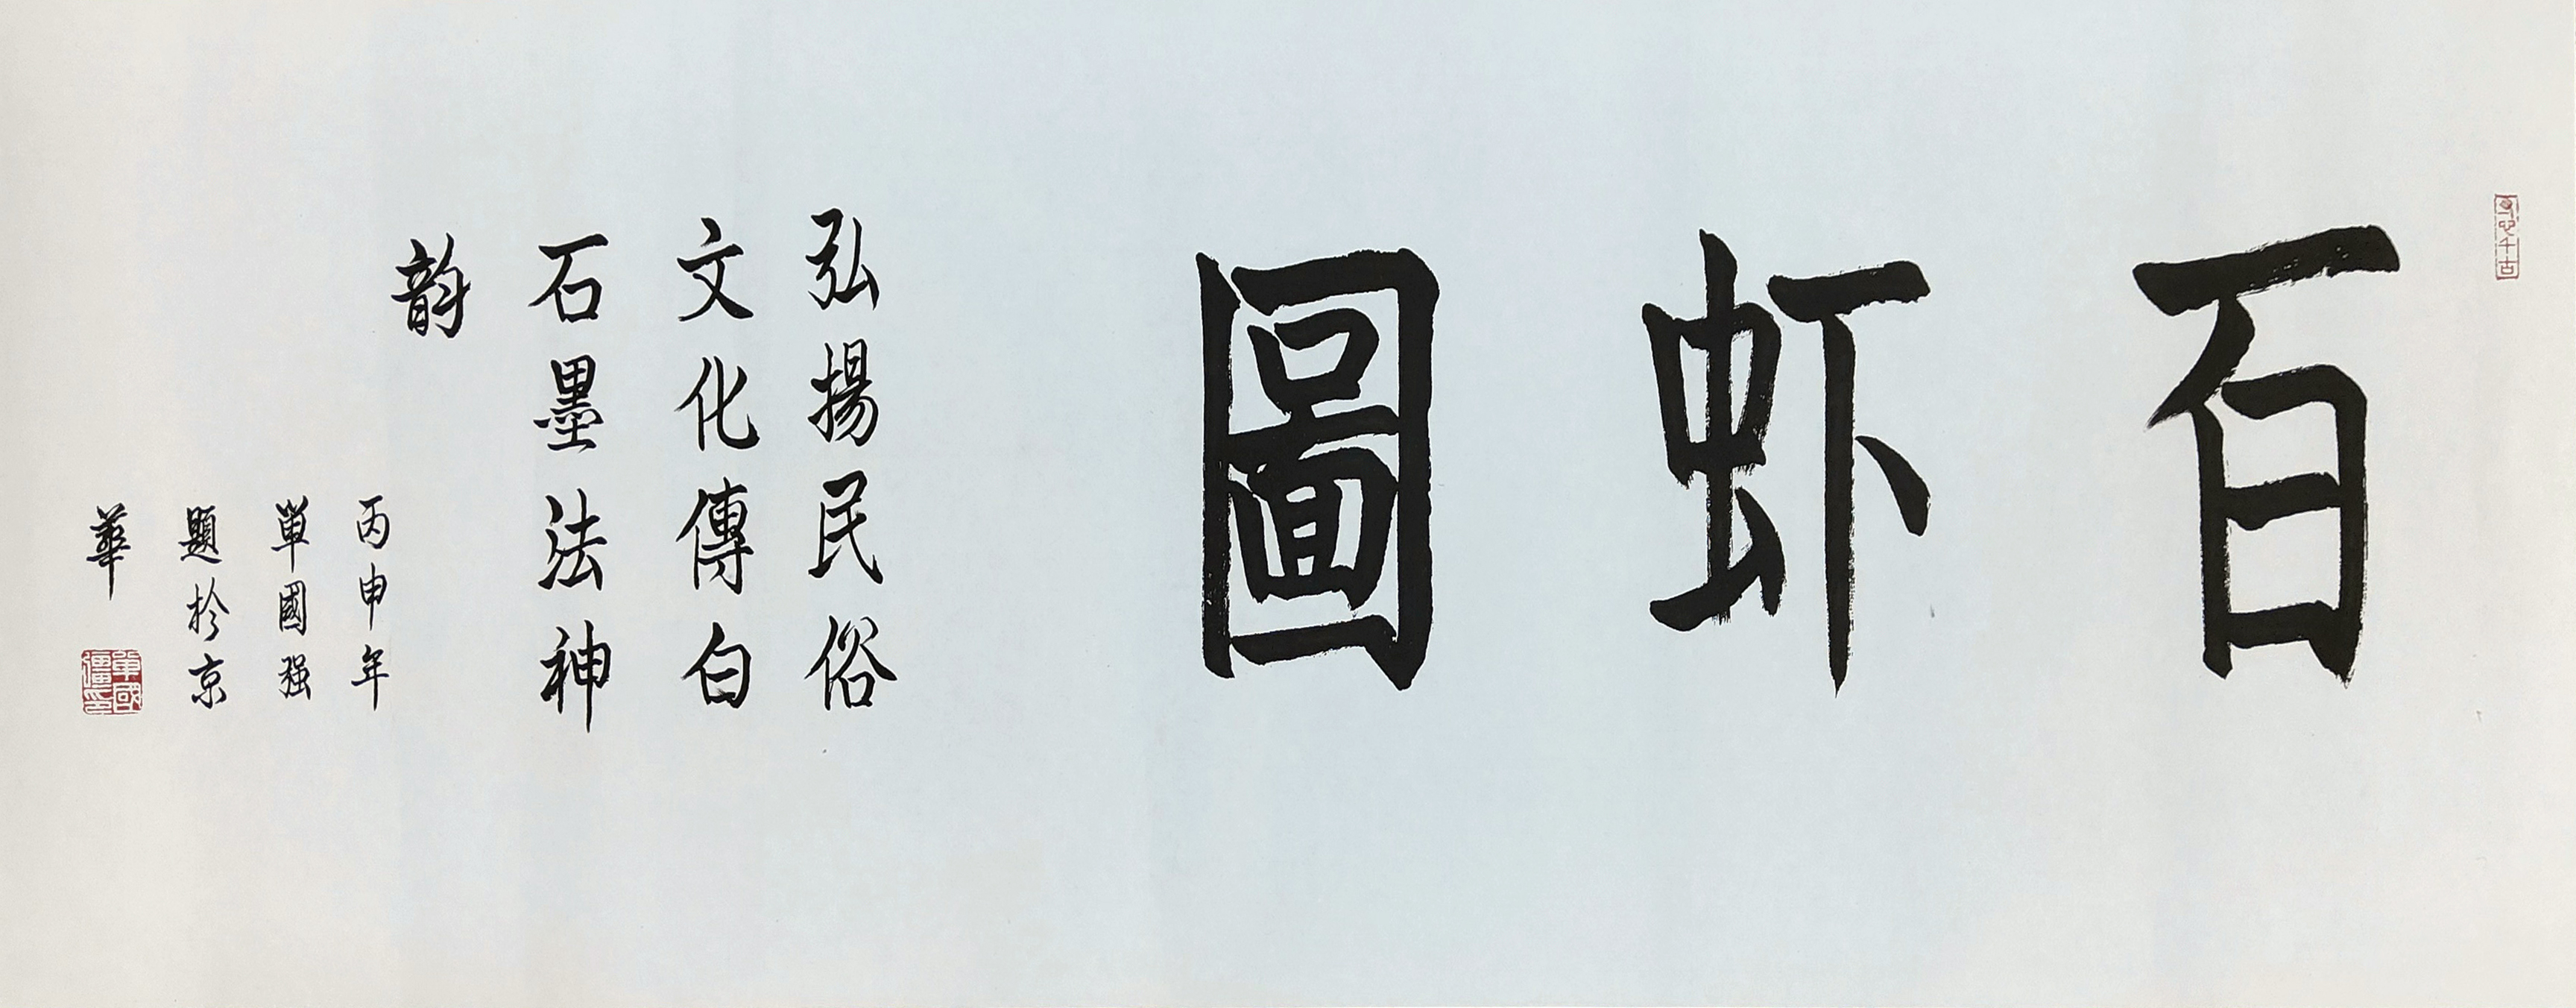 百虾圖
弘揚民俗
文化傳白
石墨法神
韵
丙申年
單國强
題於京
華
單國彊印